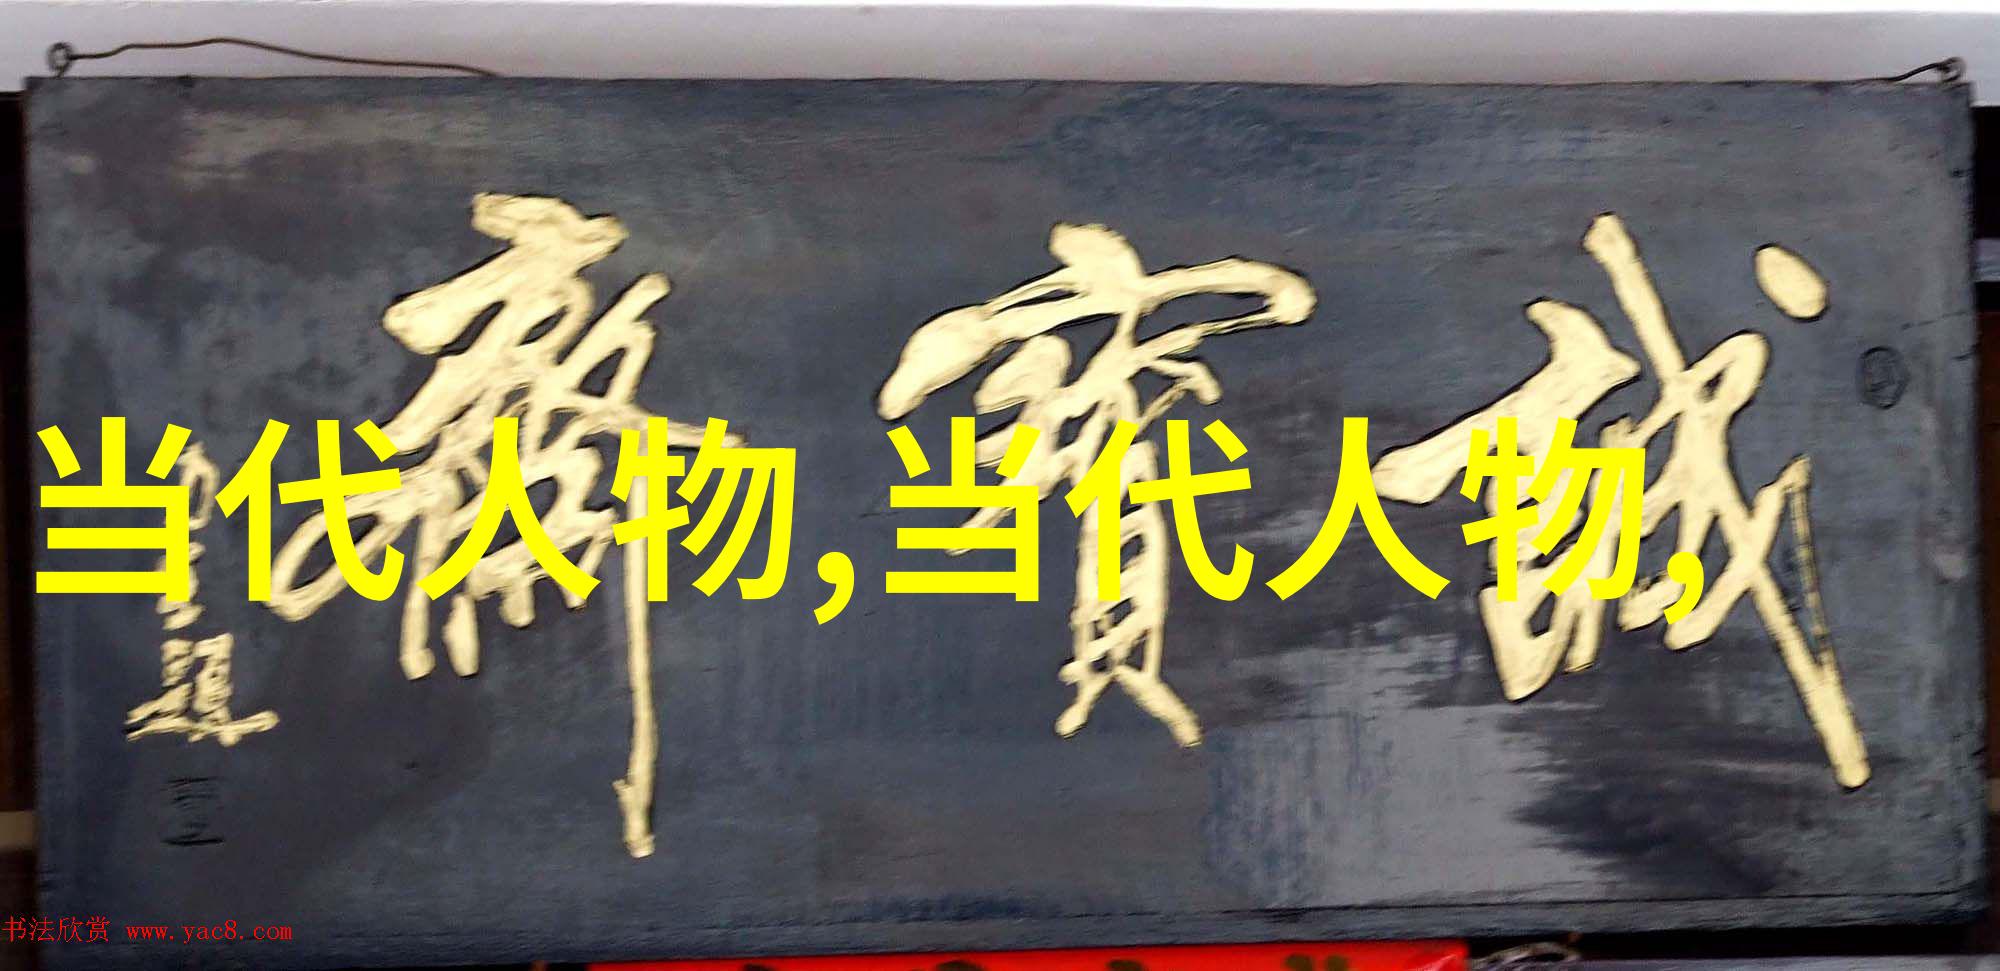 誠寶齋
当代人物,当代人物,
书法欣赏 www.yac8.com